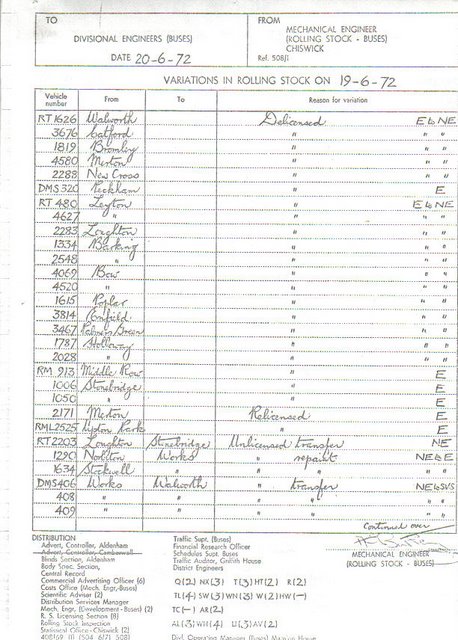 TO
DIVISIONAL ENGINEERS (BUSES)
DATE 20-6-72
FROM
MECHANICAL ENGINEER
(ROLLING STOCK - BUSES)
CHISWICK
Ref. 508J1
VARIATIONS IN ROLLING STOCK ON 19-6-72
Vehicle number From To Reason for variation
RT 1626 Walworth Delicensed E & NE
3676 Catford " " "
1819 Bromley " " "
4580 Merton " " "
2288 New Cross " " "
DMS 320 Peckham " E
RT 480 Leyton " E & NE
4627 " " " "
2283 Loughton " " "
1334 Barking " " "
2548 " " " "
4069 Bow " " "
4520 " " " "
1615 Poplar " " "
3814 Enfield " " "
3467 Palmers Green " " "
1787 Holloway " " "
2028 " " " "
RM 913 Middle Row " E
1006 Stonebridge " E
1050 " " E
2171 Merton Relicensed E
RML2525 Upton Park " E
RT 2203 Loughton Stonebridge Unlicensed transfer NE
1290 Norbiton Works " repaint NE & E
1634 Stockwell " " "
DMS406 Works Walworth " transfer NE & SVS
408 " " " " "
409 " " " " "
Continued over
MECHANICAL ENGINEER
(ROLLING STOCK - BUSES)
DISTRIBUTION
Advert. Controller, Aldenham
Advert. Controller, Camberwell
Blinds Section, Aldenham
Body Spec. Section,
Central Record
Commercial Advertising Officer (6)
Costs Officer (Mech. Engr.-Buses)
Scientific Adviser (2)
Distribution Services Manager
Mech. Engr. (Development - Buses) (2)
R. S. Licensing Section (8)
Rolling Stock Inspection
Statistical Office - Chiswick (2)
Traffic Supt. (Buses)
Financial Research Officer
Schedules Supt. Buses
Traffic Auditor, Griffith House
District Engineers
Q(2) NX(3) T(3) HT(2) R(2)
TL(4) SW(3) WN(3) W(2) HW(-)
TC(-) AR(2)
AL(3) WH(4) U(3) AV(2)
Divl. Operating Manager (Buses) Mansion House